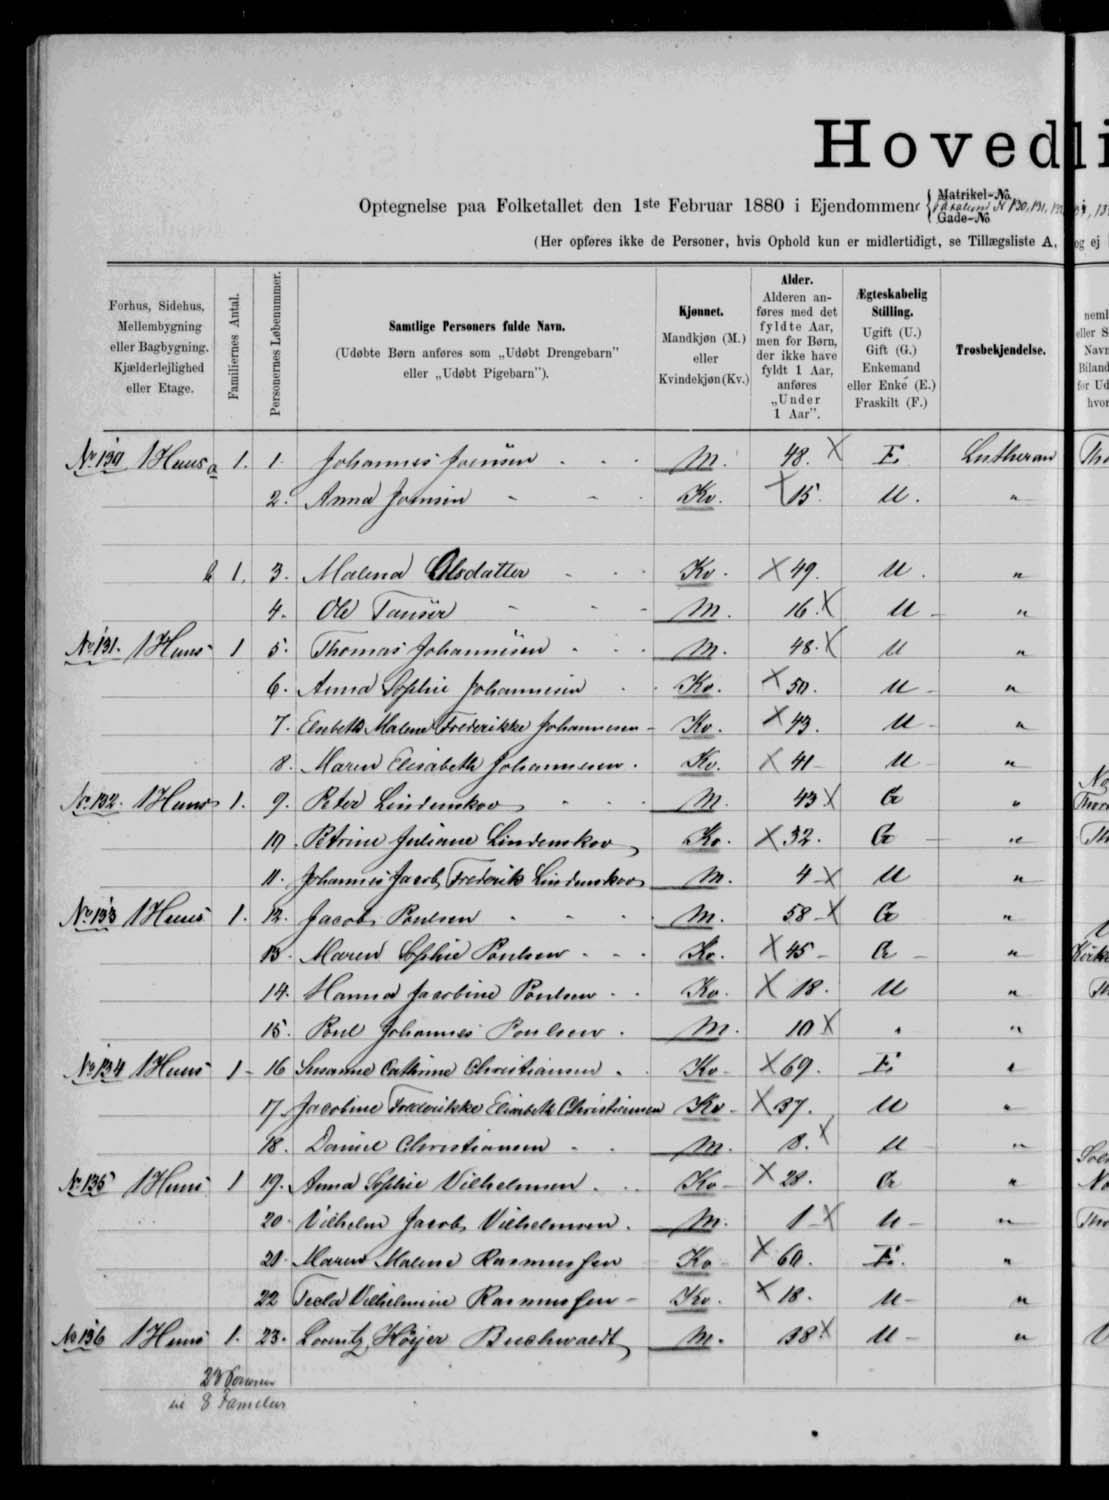 Hovedli
Optegnelse paa Folketallet den 1ste Februar 1880 i Ejendommene { Matrikel-No. No 130, 131, 132
Gade-No
(Her opføres ikke de Personer, hvis Ophold kun er midlertidigt, se Tillægsliste A, og ej
Forhus, Sidehus, Mellembygning eller Bagbygning. Kjælderlejlighed eller Etage.
Familiernes Antal.
Personernes Løbenummer.
Samtlige Personers fulde Navn.
(Udøbte Børn anføres som „Udøbt Drengebarn" eller „Udøbt Pigebarn").
Kjønnet.
Mandkjøn (M.) eller Kvindekjøn (Kv.)
Alder.
Alderen anføres med det fyldte Aar, men for Børn, der ikke have fyldt 1 Aar, anføres „Under 1 Aar".
Ægteskabelig Stilling.
Ugift (U.) Gift (G.) Enkemand eller Enke (E.) Fraskilt (F.)
Trosbekjendelse.
No 130 1 Huus a 1. 1. Johannes Joensen - - - M. 48. X E Lutheran
2. Anna Joensen - - - Kv. X 15. U. "
b 1. 3. Malena Olsdatter - - - Kv. X 49. U. "
4. Ole - - - M. 16. X U "
No 131. 1 Huus 1 5. Thomas Johannesen - - - M. 48. X U "
6. Anna Sophie Johannesen - - Kv. X 50. U "
7. Elsebeth Malene Frederikke Johannesen - Kv. X 43. U "
8. Maren Elisabeth Johannesen. Kv. X 41 U "
No 132. 1 Huus 1. 9. Peter Lindenskov - - - M. 43 X G "
10. Petrine Juliane Lindenskov Kv. X 32. G "
11. Johannes Jacob Frederik Lindenskov M. 4 X U "
No 133 1 Huus 1. 12. Jacob Poulsen - - - M. 58 X G "
13. Maren Sophie Poulsen - - - Kv. X 45 G "
14. Hanna Jacobine Poulsen - - Kv. X 18. U "
15. Poul Johannes Poulsen. M. 10 X " "
No 134 1 Huus 1 16 Susanne Cathrine Christiansen - Kv. X 69. E "
17. Jacobine Frederikke Elisabeth Christiansen Kv. X 37. U "
18. Daniel Christiansen - - M. 8. X U "
No 135 1 Huus 1 19. Anna Sophie Vilhelmsen - - Kv X 28. G "
20. Vilhelm Jacob Vilhelmsen. M. 1 X U "
21. Maren Malene Rasmussen Kv X 60. E. "
22 Tecla Vilhelmine Rasmussen - Kv. X 18. U "
No 136 1 Huus 1. 23. Lorentz Høyer Buchwaldt M. 38 X U "
23 Personer
8 Familier